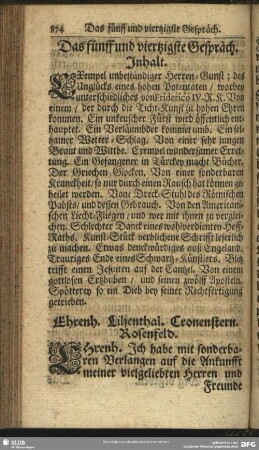 874 Das fünff und viertzigste Gespräch.
Das fünff und viertzigste Gespräch.
Inhalt.
EXempel unbeständiger Herren-Gunst; des
Unglücks eines hohen Potentaten / worbey
unterschiedliches von Friderico IV. R. K. Von
einem / der durch die Ticht-Kunst zu hohen Ehren
kommen. Ein unkeuscher Fürst wird öffentlich ent-
hauptet. Ein Verläumbder kommet umb. Ein sel-
tzamer Wetter-Schlag. Von einer sehr jungen
Braut und Wittbe. Exempel wundersamer Erret-
tung. Ein Gefangener in Türckey macht Bücher.
Der Griechen Glocken. Von einer sonderbaren
Kranckheit / so nur durch einen Rausch hat können ge-
heilet werden. Vom Dreck-Stuhl des Römischen
Pabsts / und dessen Gebrauch. Von den Americani-
schen Liecht-Fliegen / und wer mit ihnen zu verglei-
chen. Schlechter Danck eines wohlverdienten Hoff-
Raths. Kunst-Stück verblichene Schrifft leserlich
zu machen. Etwas denckwürdiges auß Engeland.
Trauriges Ende eines Schwartz-Künstlers. Blitz
trifft einen Jesuiten auf der Cantzel. Von einem
gottlosen Ertzbuben / und seinen zwölff Aposteln.
Spötterey so ein Dieb bey seiner Rechtfertigung
getrieben.
Ehrenh. Liljenthal. Cronenstern.
Rosenfeld.
EHrenh. Ich habe mit sonderba-
ren Verlangen auf die Ankunfft
meiner vielgeliebten Herren und
Freunde
SLUB
DFG